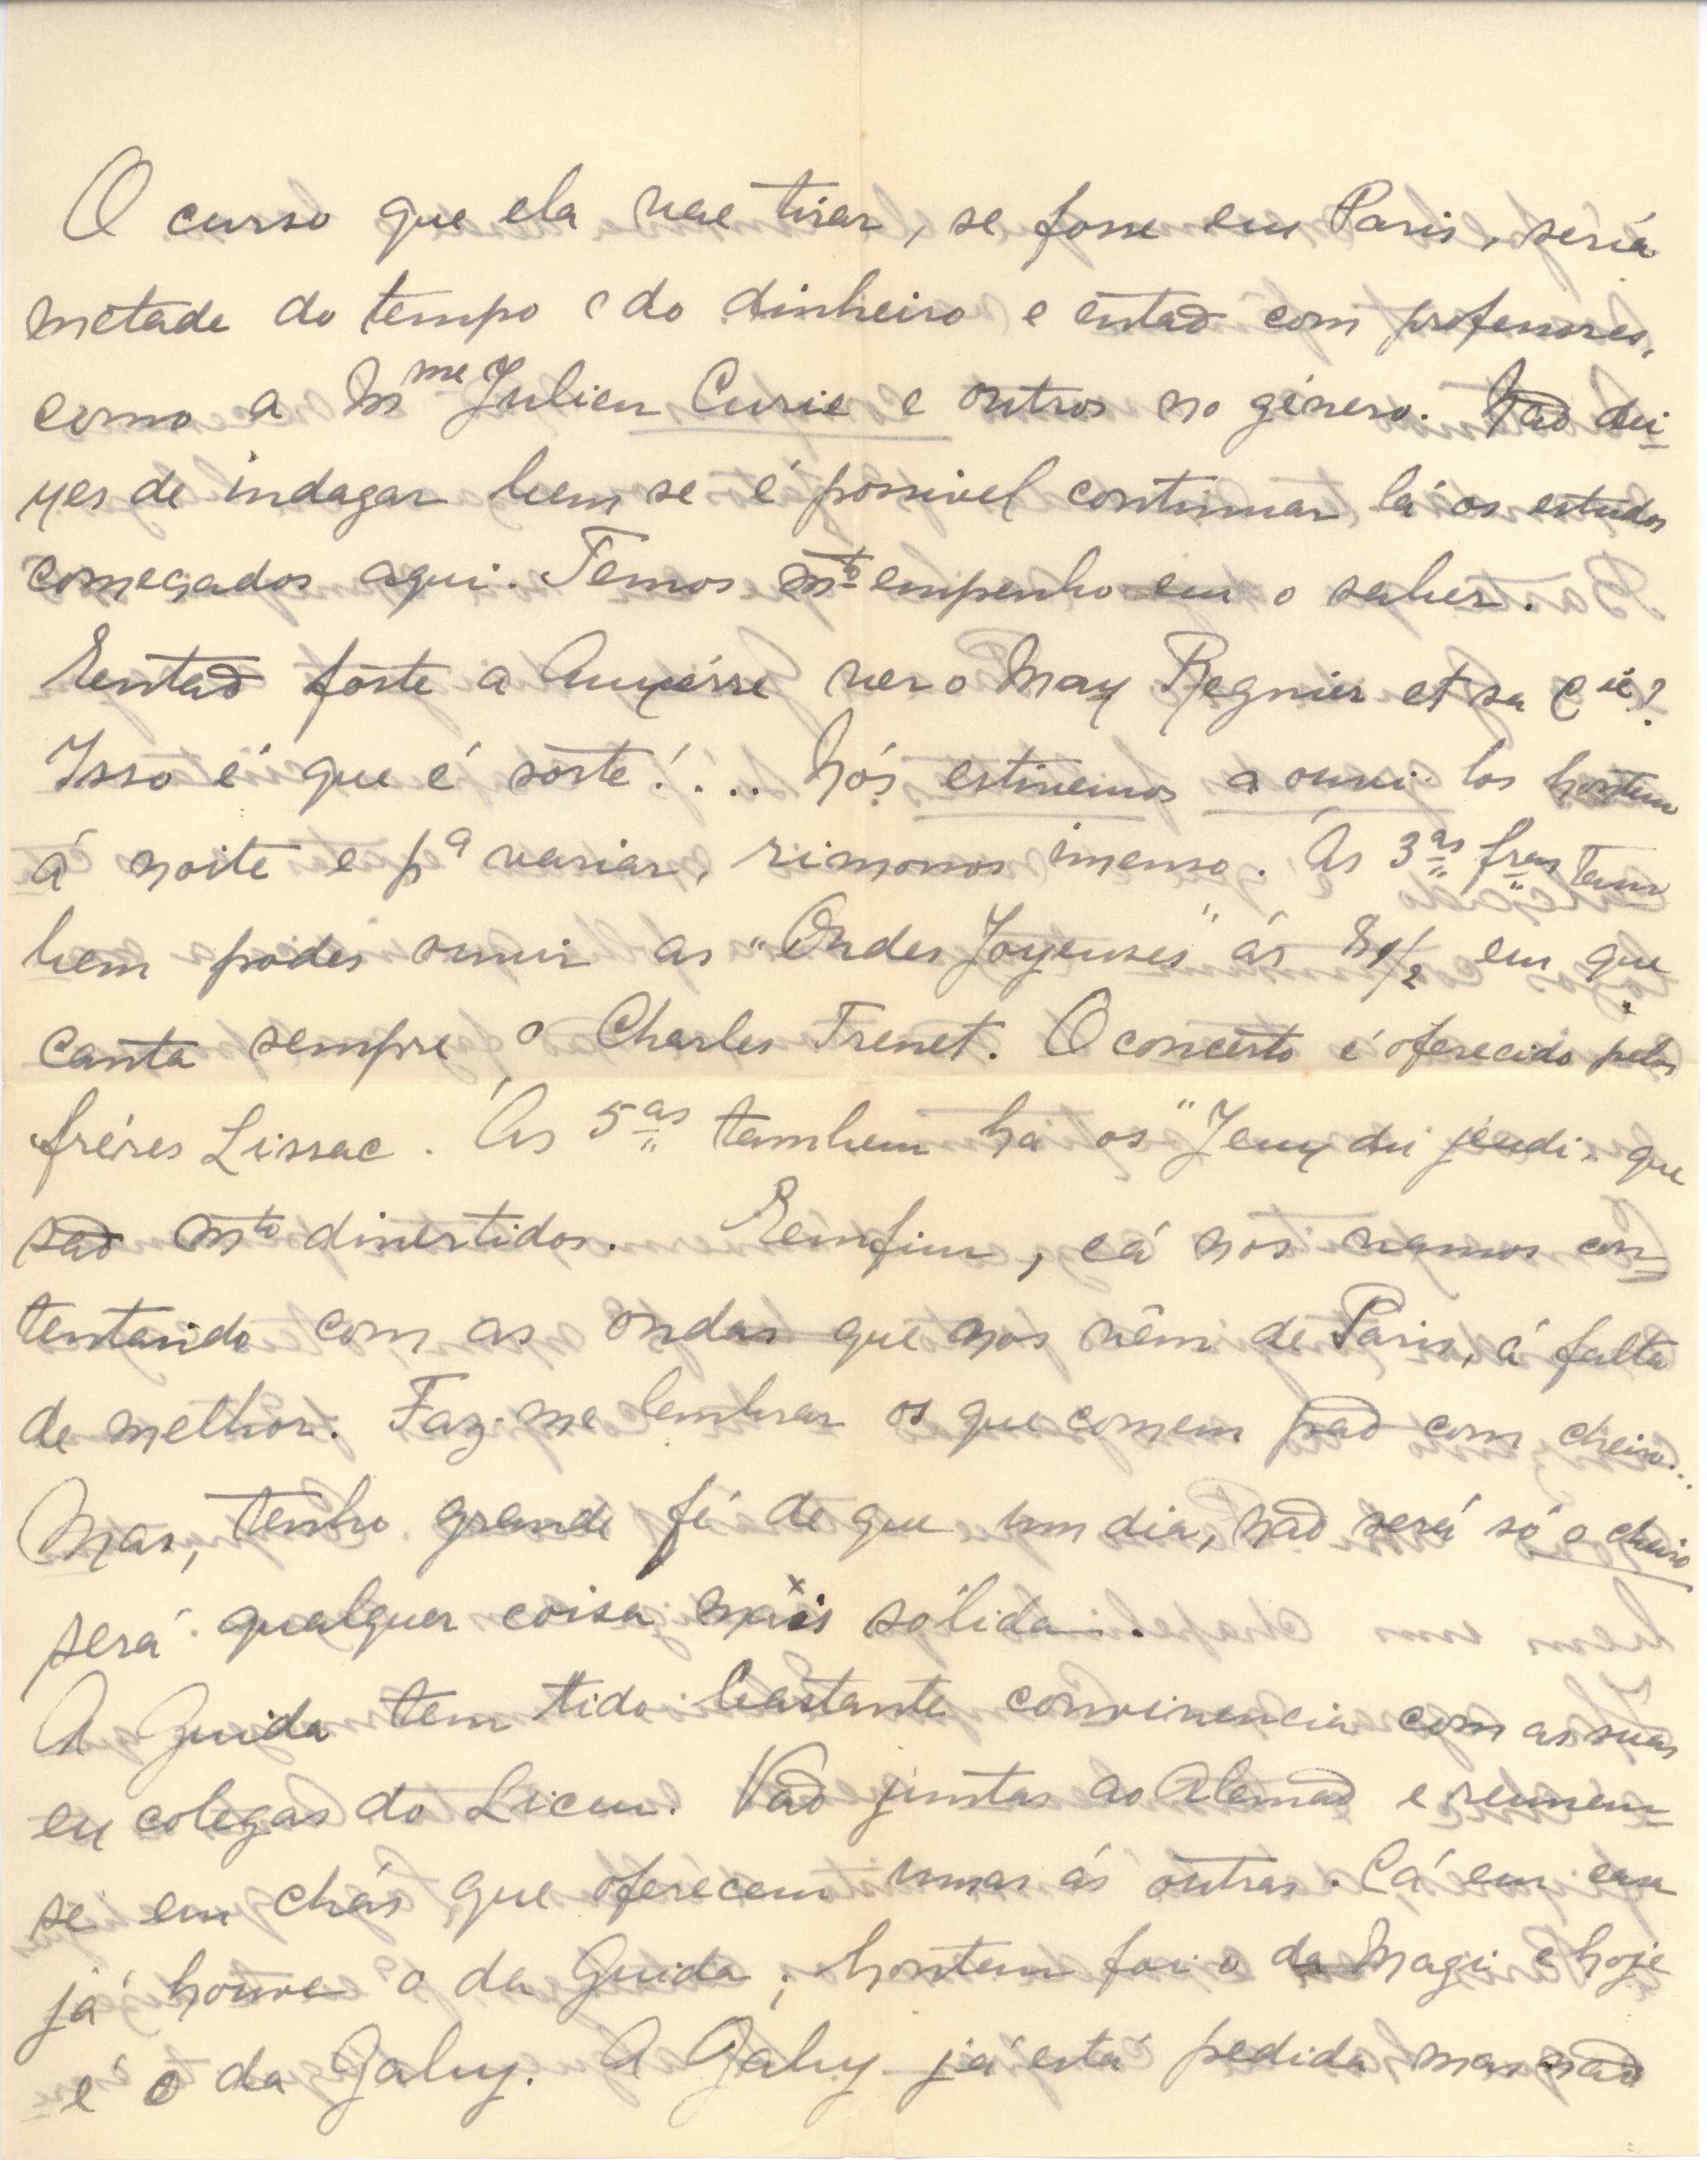 O curso que ela vae tirar, se fosse em Paris, seria
metade do tempo e do dinheiro e então com professores,
como a Mme Julien Curie e outros no género. Não dei-
xes de indagar bem se é possivel continuar lá os estudos
começados aqui. Temos mto empenho em o saber.
E então foste a Auxérre ver o Max Regnier et sa Cie?
Isso é que é sorte!... Nós estivemos a ouvi-los hontem
á noite e pa variar, rimonos imenso. Ás 3as fras tam
bem podes ouvir as "Ondes Joyeuses" ás 8 1/2 em que
canta sempre o Charles Trenet. O concerto é oferecido pelos
fréres Lissac. Ás 5as tambem ha os "Jeux du jeudi" que
são mto divertidos. Eemfim, cá nos vamos con-
tentando com as ondas que nos vêm de Paris, á falta
de melhor. Faz-me lembrar os que comem pão com cheiro...
Mas, tenho grande fé de que um dia, não será só o cheiro
será qualquer coisa mais sólida.
A Guida tem tido bastante convivencia com as suas
ex colegas do Liceu. Vão juntas ao Alemão e reunem-
se em chás que oferecem umas ás outras. Cá em casa
já houve o da Guida; hontem foi o da Magi e hoje
é o da Gaby. A Gaby já está pedida mas não